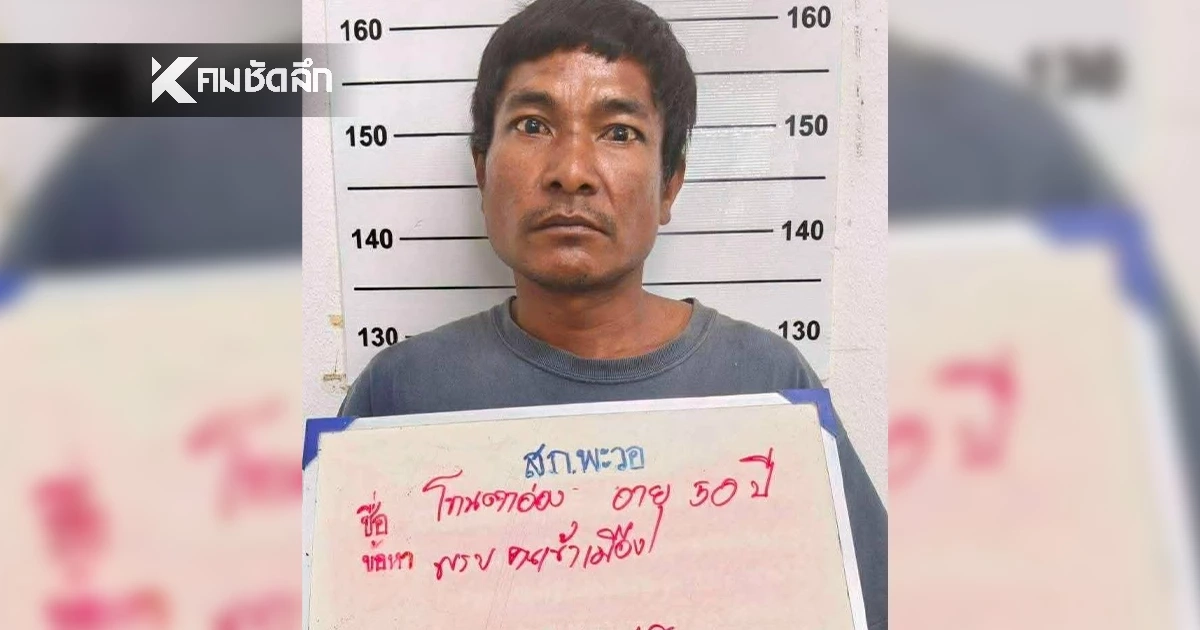 คมชัดลึก
160 160
150 150
140 140
130 130
130
สภ.พะวอ
ชื่อ โทนตาอ่อง อายุ 50 ปี
ข้อหา พรบ คนเข้าเมือง